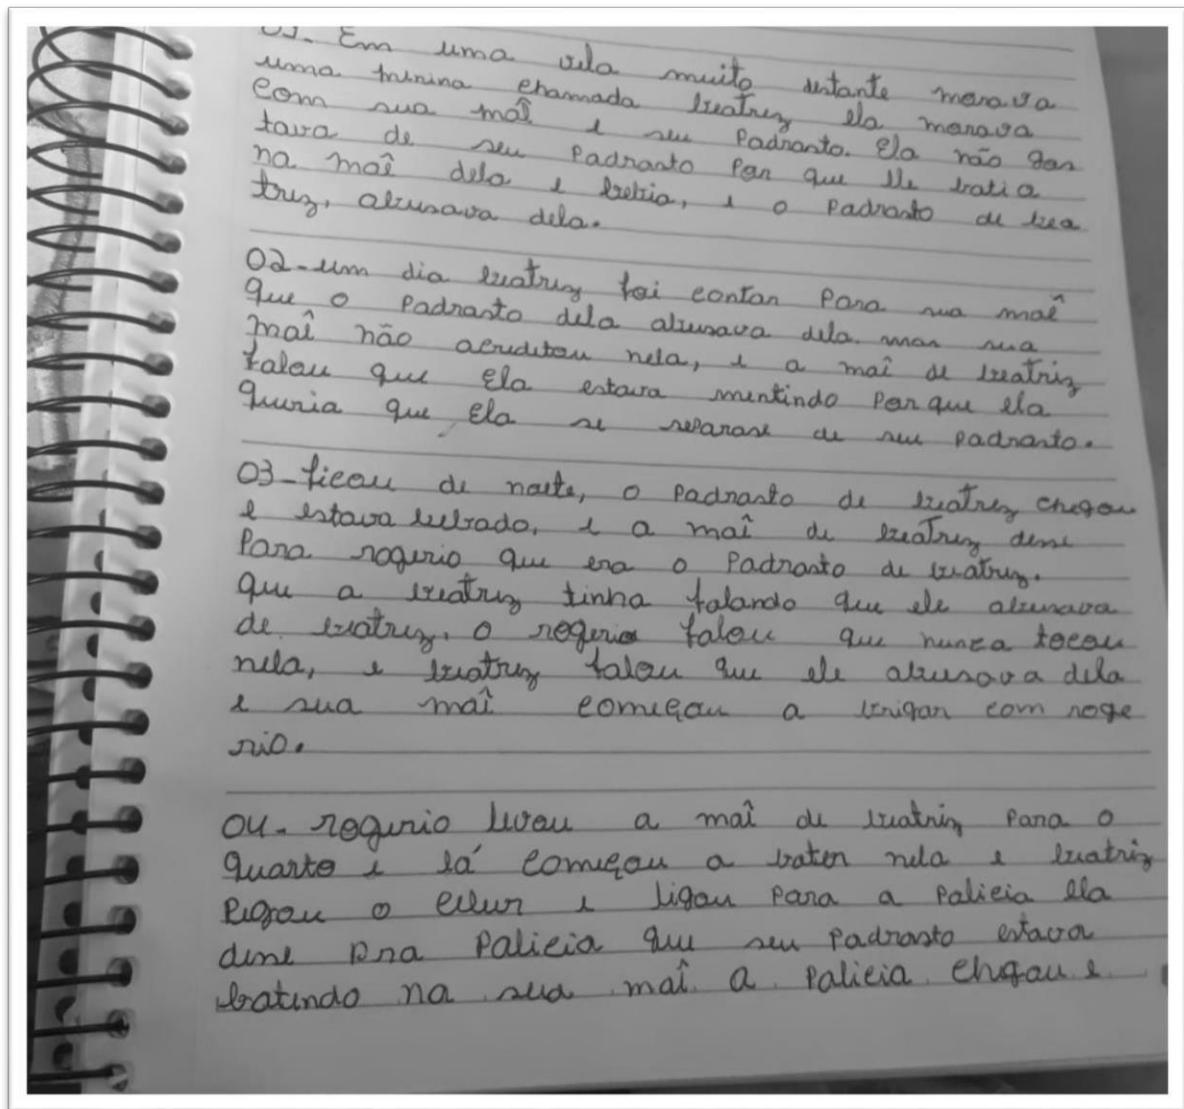 01- Em uma vila muito distante morava
uma minina chamada beatriz ela morava
com sua maê e seu Padrasto. Ela não gos
tava de seu Padrasto Por que ele batia
na maê dela e bebia, e o Padrasto de bea
triz, abusava dela.
02-um dia beatriz foi contar Para sua maê
que o Padrasto dela abusava dela. mas sua
maê não acreditou nela, e a maê de beatriz
falou que Ela estava mentindo Porque ela
queria que Ela se separase de seu padrasto.
03-ficou de noite, o Padrasto de beatriz chegou
e estava bebado, e a maê de beatriz disse
Para rogerio que era o Padrasto de beatriz.
que a beatriz tinha falando que ele abusava
de beatriz. o rogerio falou que nunca tocou
nela, e beatriz falou que ele abusava dela
e sua maê começou a brigar com roge
rio.
04- rogerio levou a maê de beatriz Para o
quarto e lá começou a bater nela e beatriz
Pegou o celur e ligou Para a Policia ela
disse Pra Policia que seu Padrasto estava
batendo na sua maê a Policia chegou e